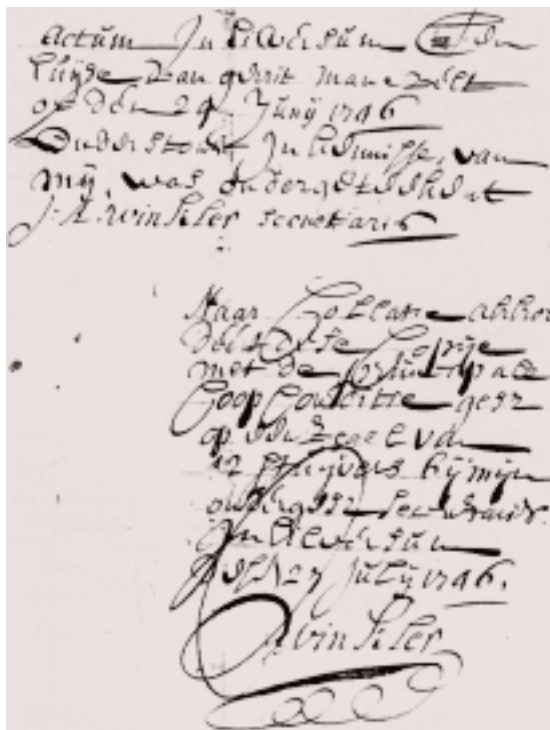 actum In hilversum Ten
huijse van gerrit manevelt
op den 24 Junij 1796
Onderstont In kennisse van
mij, was ondergeteekent
J: A: winkler secretaris
Naar Collatie akkor
deert dese Copije
met de principale
Coop Conditie gesz
op een zegel van
12 stuijvers bij mijn
ondergesz secretaris
In hilversum
den 27 Julij 1796.
winkler